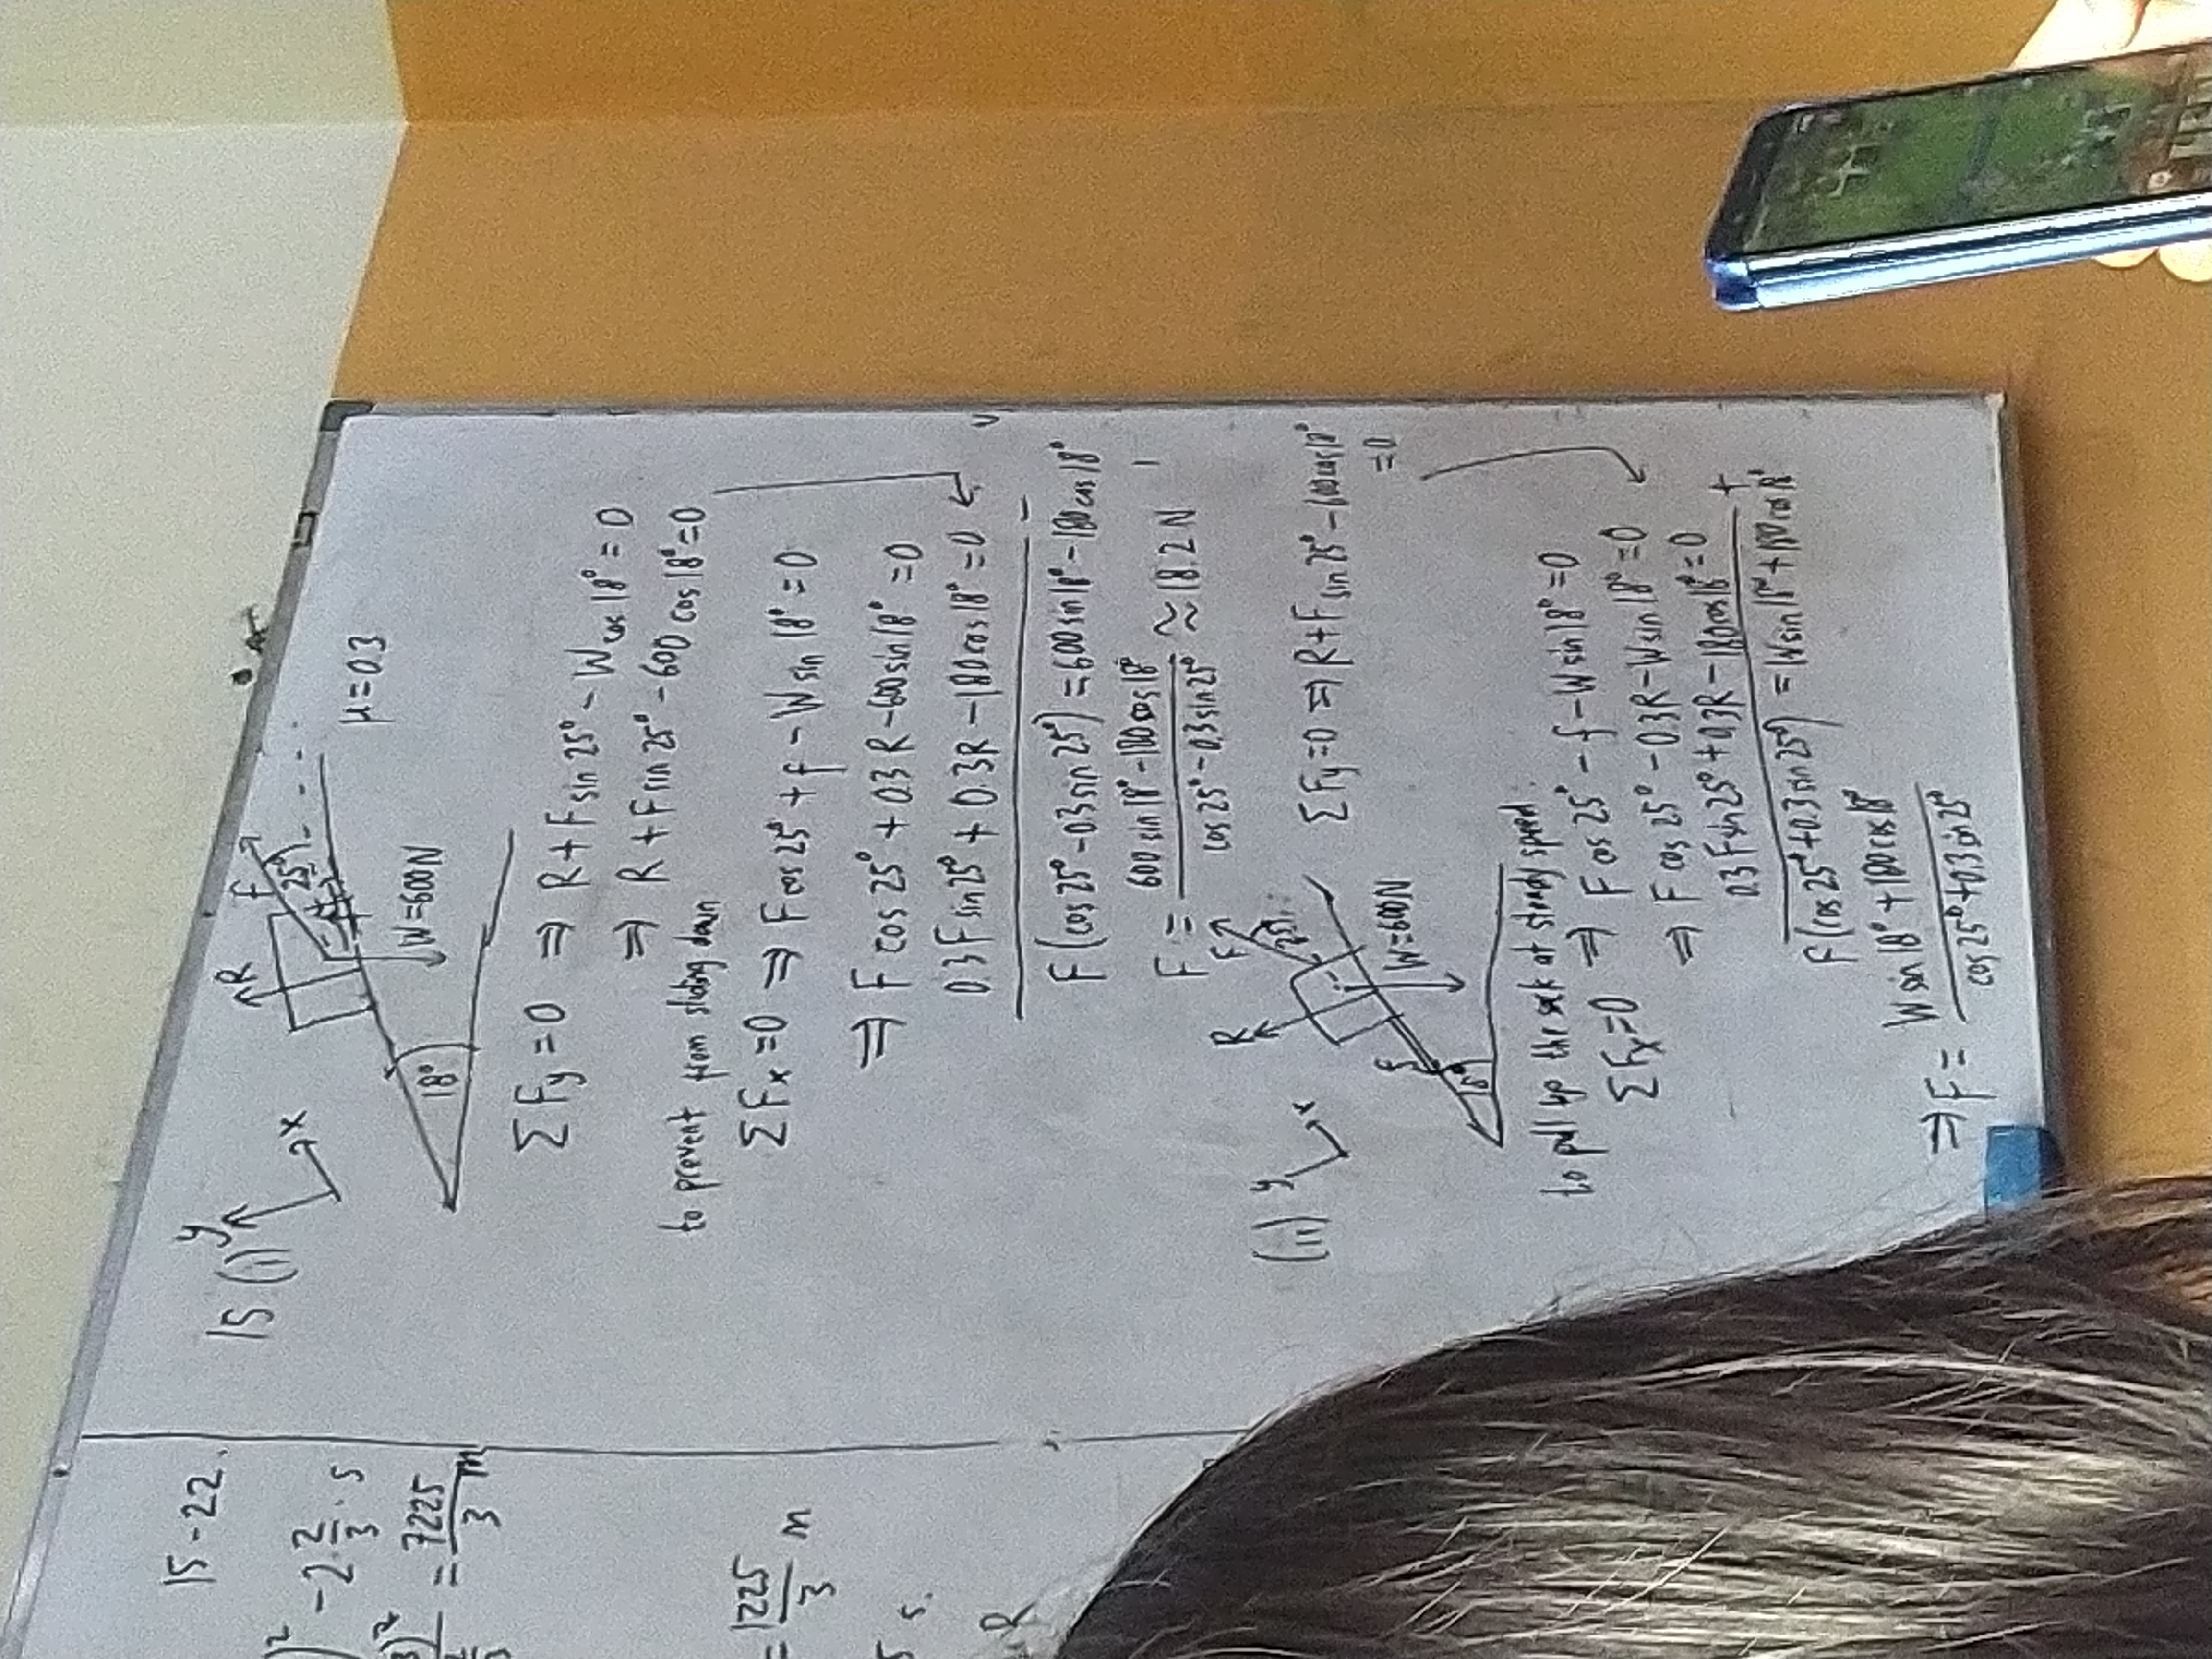 15-22.
)² - 2·2/3·s
= 7225/3 m
= 1225/3 m
s.
R
15 (i)
y
x
R
F
25°
μ=0.3
18°
W=600N
ΣFy=0 ⇒ R+F sin 25° - W cos 18° = 0
⇒ R + F sin 25° - 600 cos 18° = 0
to prevent from sliding down
ΣFx=0 ⇒ F cos 25° + f - W sin 18° = 0
⇒ F cos 25° + 0.3 R - 600 sin 18° = 0
0.3 F sin 25° + 0.3R - 180 cos 18° = 0
-
F (cos 25° - 0.3 sin 25°) = 600 sin 18° - 180 cos 18°
F = (600 sin 18° - 180 cos 18°)/(cos 25° - 0.3 sin 25°) ≈ 18.2 N
(ii)
y
x
R
F
25°
f
W=600N
18°
ΣFy=0 ⇒ R+F sin 25° - 600 cos 18°
=0
to pull up the sack at steady speed.
ΣFx=0 ⇒ F cos 25° - f - W sin 18° = 0
⇒ F cos 25° - 0.3R - W sin 18° = 0
0.3 F sin 25° + 0.3R - 180 cos 18° = 0
+
F (cos 25° + 0.3 sin 25°) = W sin 18° + 180 cos 18°
⇒ F = (W sin 18° + 180 cos 18°)/(cos 25° + 0.3 sin 25°)